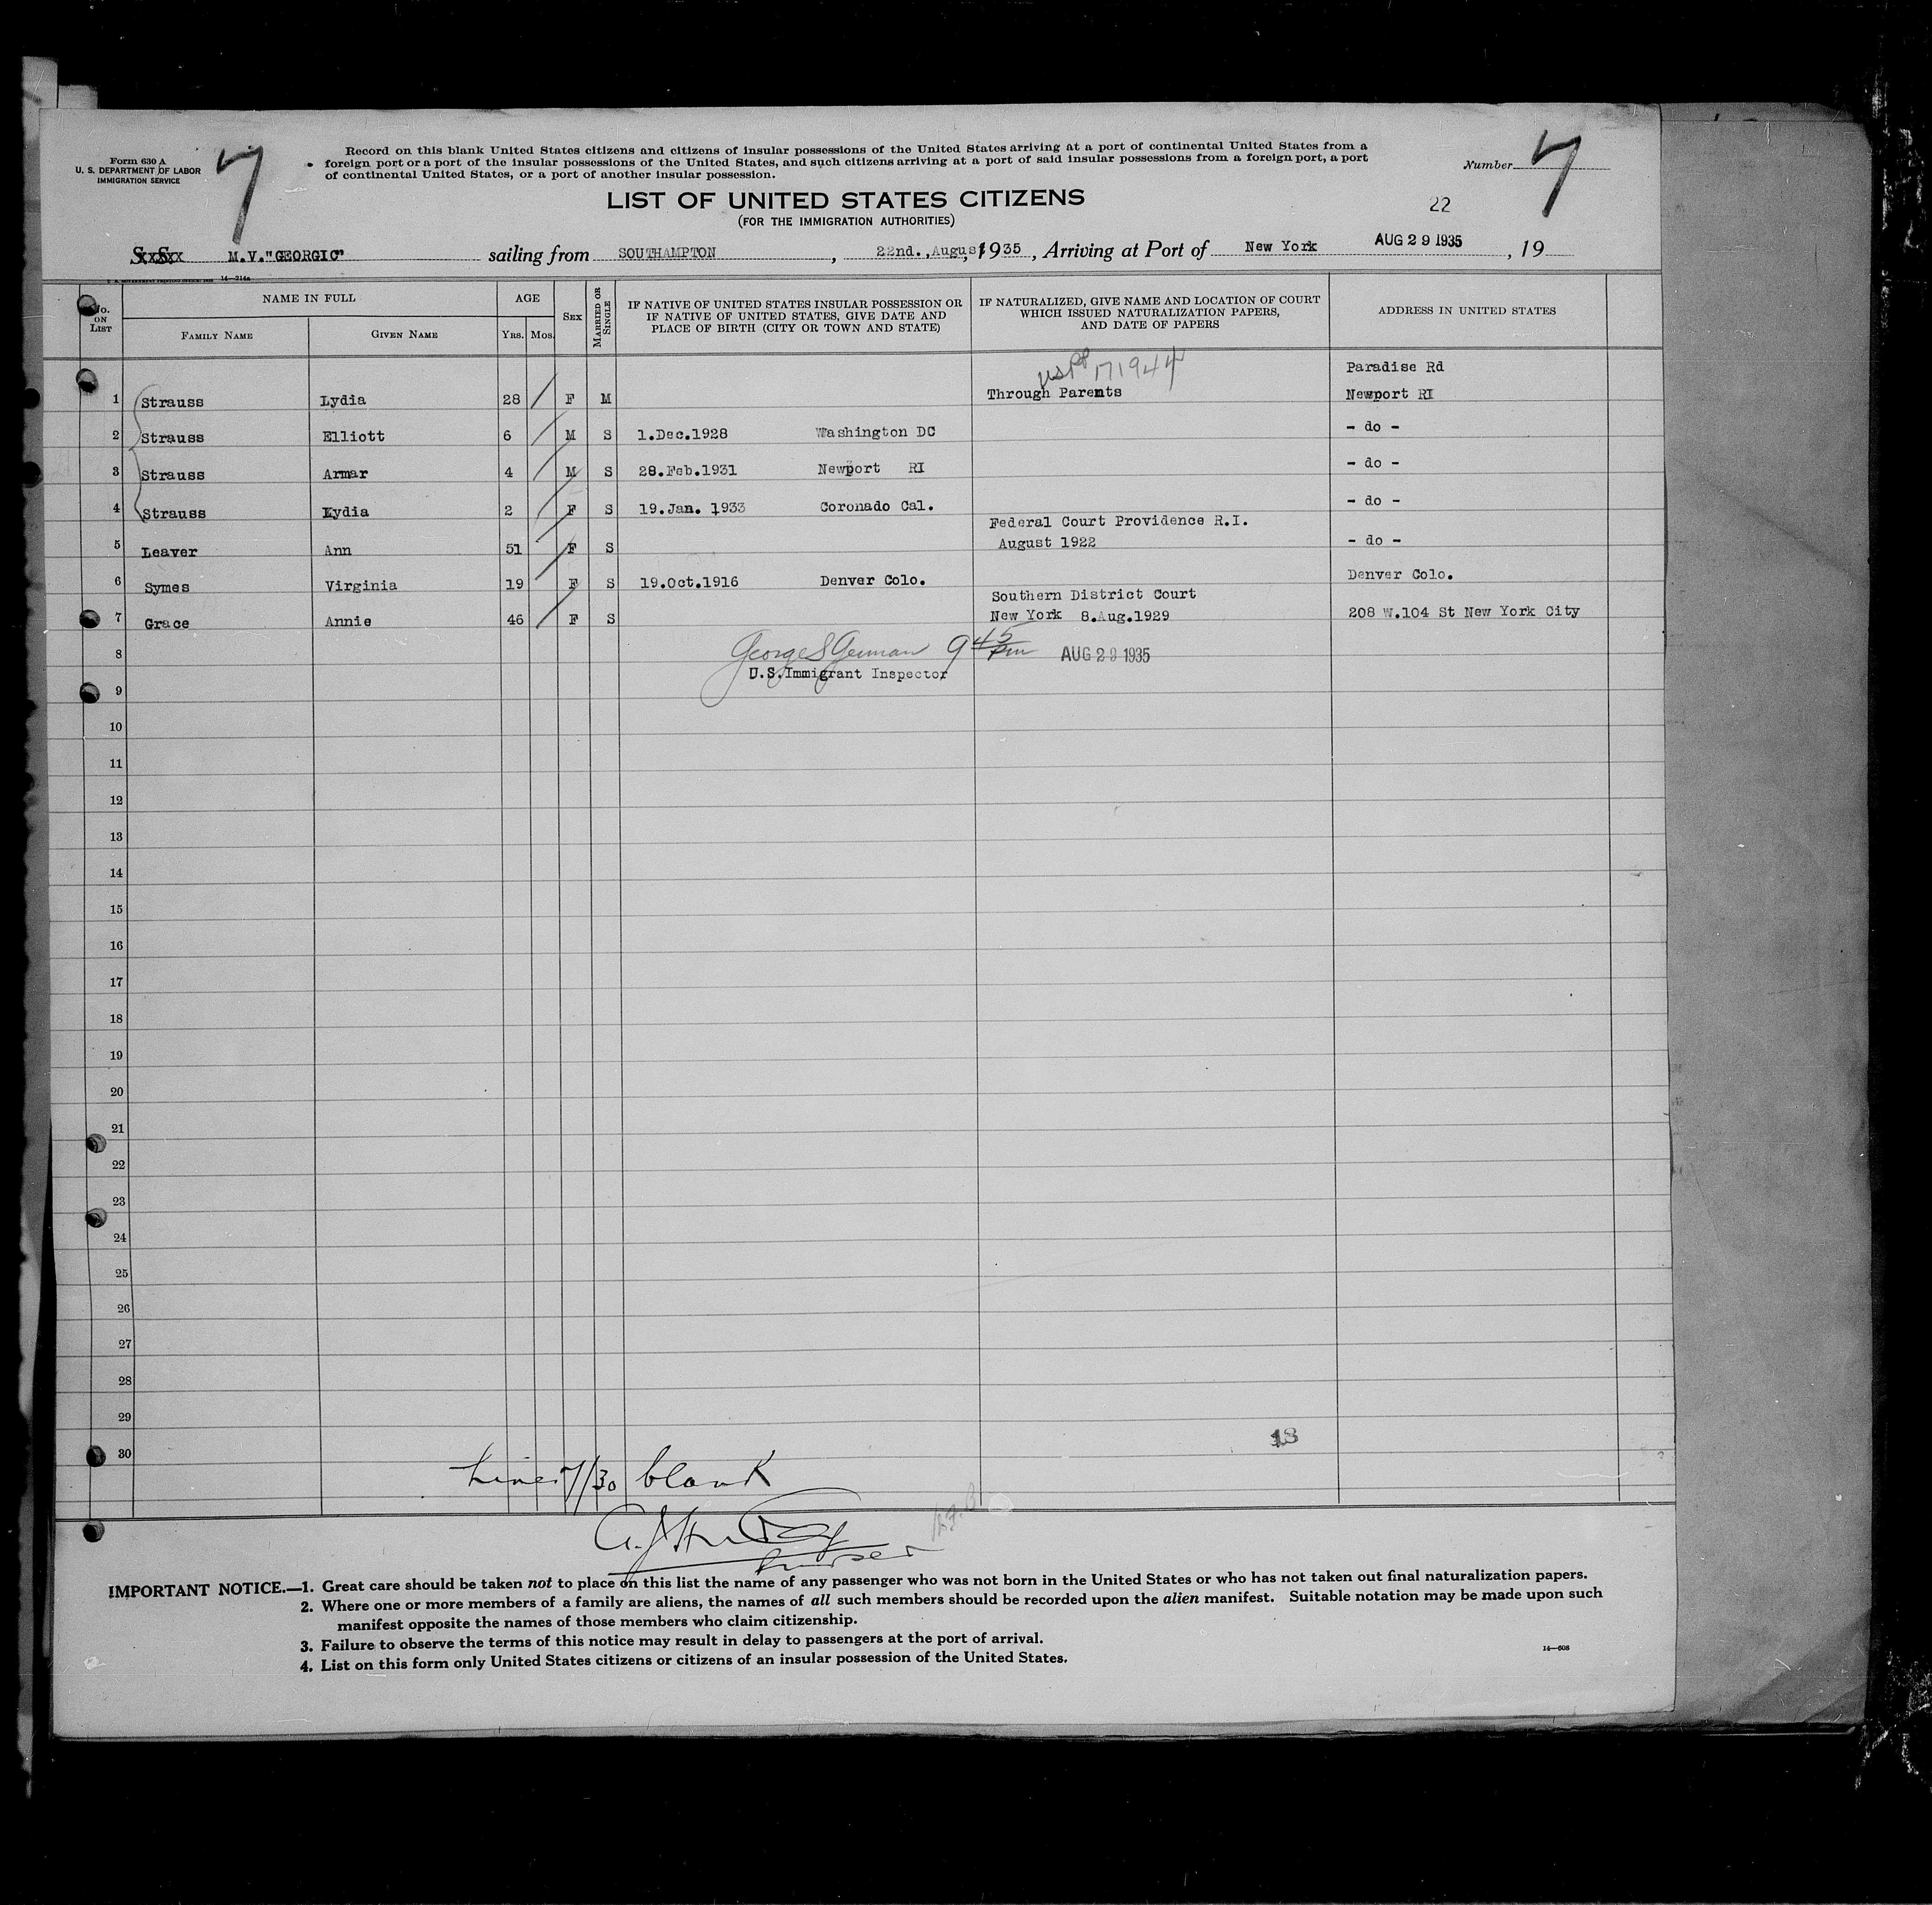 Form 630 A
U. S. DEPARTMENT OF LABOR
IMMIGRATION SERVICE
7
Record on this blank United States citizens and citizens of insular possessions of the United States arriving at a port of continental United States from a
foreign port or a port of the insular possessions of the United States, and such citizens arriving at a port of said insular possessions from a foreign port, a port
of continental United States, or a port of another insular possession.
Number 7
LIST OF UNITED STATES CITIZENS
(FOR THE IMMIGRATION AUTHORITIES)
22
M.V."GEORGIC" sailing from SOUTHAMPTON, 22nd.,August, 1935, Arriving at Port of New York AUG 29 1935, 19
14—214a
No. ON LIST
NAME IN FULL
FAMILY NAME GIVEN NAME
AGE
YRS. MOS.
SEX
MARRIED OR SINGLE
IF NATIVE OF UNITED STATES INSULAR POSSESSION OR
IF NATIVE OF UNITED STATES, GIVE DATE AND
PLACE OF BIRTH (CITY OR TOWN AND STATE)
IF NATURALIZED, GIVE NAME AND LOCATION OF COURT
WHICH ISSUED NATURALIZATION PAPERS,
AND DATE OF PAPERS
ADDRESS IN UNITED STATES
USPP 171944 Paradise Rd
1 Strauss Lydia 28 F M Through Parents Newport RI
2 Strauss Elliott 6 M S 1.Dec.1928 Washington DC - do -
3 Strauss Armar 4 M S 28.Feb.1931 Newport RI - do -
4 Strauss Lydia 2 F S 19.Jan. 1933 Coronado Cal. - do -
Federal Court Providence R.I.
5 Leaver Ann 51 F S August 1922 - do -
6 Symes Virginia 19 F S 19.Oct.1916 Denver Colo. Denver Colo.
Southern District Court
7 Grace Annie 46 F S New York 8.Aug.1929 208 W.104 St New York City
8 George S German 9 45 pm AUG 29 1935
U.S.Immigrant Inspector
9
10
11
12
13
14
15
16
17
18
19
20
21
22
23
24
25
26
27
28
29
13
30
Lines 7/30 blank
Purser
IMPORTANT NOTICE.—1. Great care should be taken not to place on this list the name of any passenger who was not born in the United States or who has not taken out final naturalization papers.
2. Where one or more members of a family are aliens, the names of all such members should be recorded upon the alien manifest. Suitable notation may be made upon such
manifest opposite the names of those members who claim citizenship.
3. Failure to observe the terms of this notice may result in delay to passengers at the port of arrival.
4. List on this form only United States citizens or citizens of an insular possession of the United States.
14—608